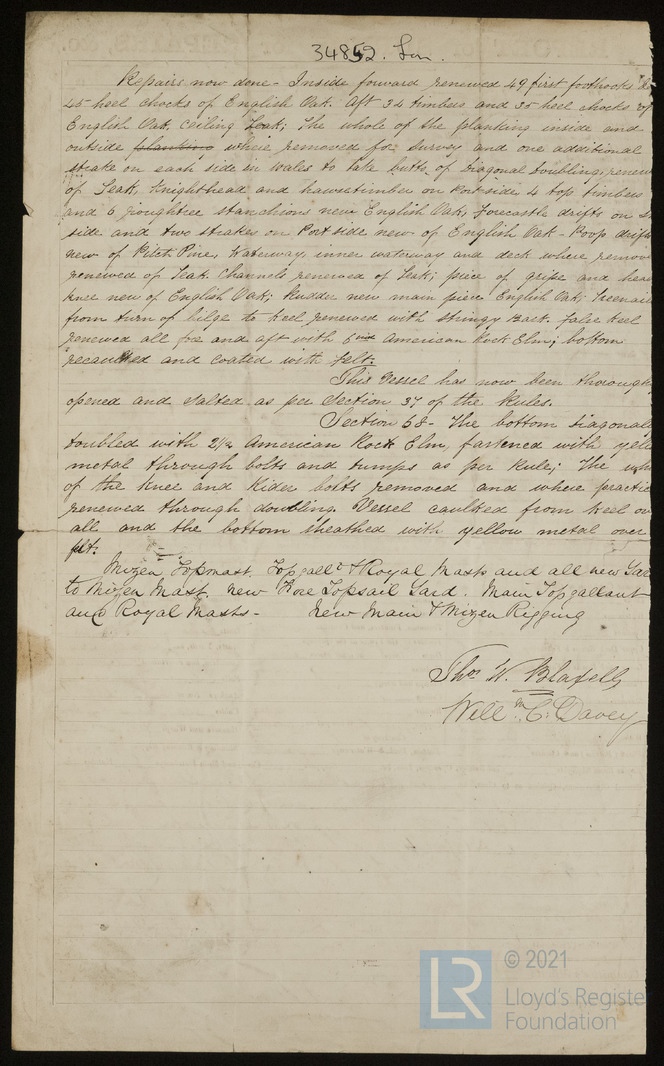 34852. Lon.
Repairs now done - Inside forward renewed 49 first foothooks &
45 heel chocks of English Oak. Aft 34 timbers and 35 heel chocks of
English Oak, ceiling Teak; The whole of the planking inside and
outside planking where removed for survey and one additional
strake on each side in wales to take butts of diagonal doubling, renew
of Teak, Knighthead and hawsetimber on Port side 4 top timbers
and 6 roughtree stanchions new English Oak, Forecastle drifts on
side and two strakes on Port side new of English Oak - Poop drifts
new of Pitch Pine, Waterway, inner waterway and deck where remov
renewed of Teak Channels renewed of Teak; piece of gripe and head
knee new of English Oak; Rudder new main piece English Oak; Treenails
from turn of bilge to keel renewed with stringy Bark. False keel
renewed all fore and aft with American Rock Elm; bottom
recaulked and coated with felt.
This Vessel has now been thorough
opened and salted as per Section 37 of the Rules.
Section 58 - The bottom diagonall
doubled with 2½ American Rock Elm, fastened with yell
metal through bolts and dumps as per Rule; The
of the knee and Rider bolts removed and where practic
renewed through doubling. Vessel caulked from keel ov
all and the bottom sheathed with yellow metal over
felt.
Mizen Topmast, Topgallt & Royal Masts and all new Yar
to Mizen Mast, new Fore Topsail Yard. Main Topgallant
and Royal Masts - New Main & Mizen Rigging
Thos W. Blaxell
Willm C. Davey
LR
© 2021
Lloyd's Register
Foundation